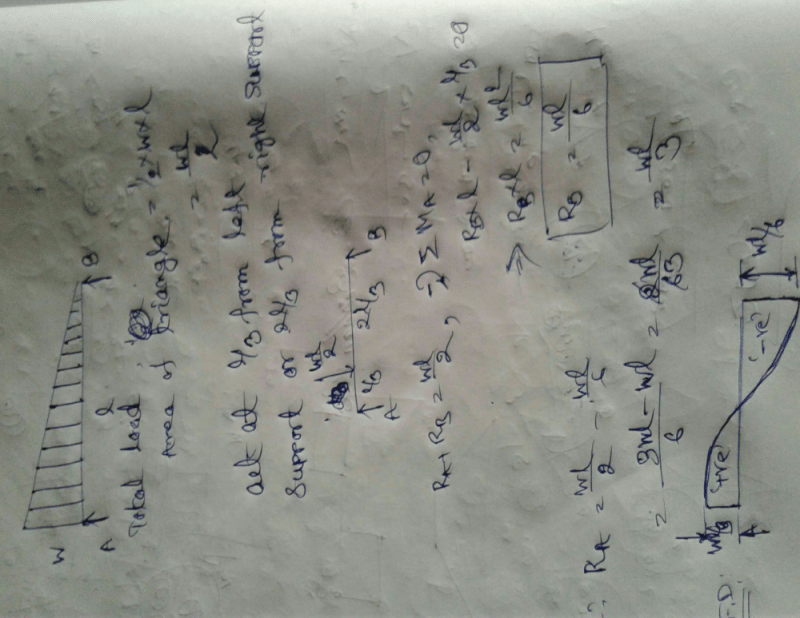 W
A l B
Total load : Area of triangle = ½ × w × l
= wl/2
act at l/3 from left support or 2l/3 from right support
wl/2
l/3 2l/3
A B
RA + RB = wl/2 , → ΣMA = 0,
RB×l - wl/2 × l/3 = 0
⇒ RB×l = wl²/6
RB = wl/6
∴ RA = wl/2 - wl/6
= 3wl - wl/6 = 2wl/63 = wl/3
wl/3 '+ve' '-ve' wl/6
F.D.